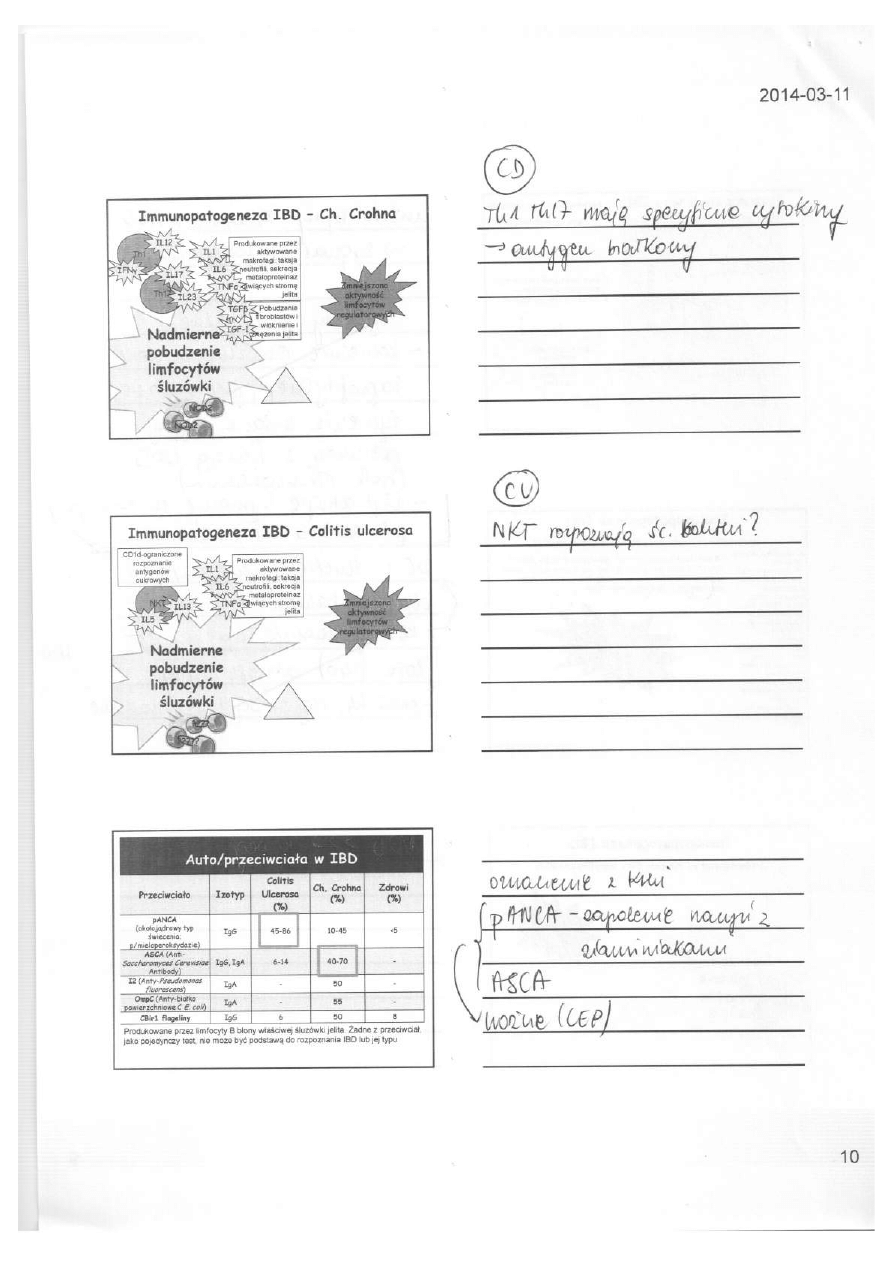 2014-03-11
CD
Th1 Th17 mają specyficzne cytokiny
→ antygen białkowy
Immunopatogeneza IBD – Ch. Crohna
IL12
Th1
IFNγ
IL1
IL17
IL6
TNFα
IL23
TGFβ
IGF-1
Produkowane przez
aktywowane
makrofagi: taksja
neutrofili, sekrecja
metaloproteinaz
trawiących stromę
jelita
Pobudzenia
fibroblastów i
włóknienie i
jelita
Zmniejszona
aktywność
limfocytów
regulatorowych
Nadmierne
pobudzenie
limfocytów
śluzówki
NOD2
NOD2
CU
NKT rozpoznają śc.
Immunopatogeneza IBD – Colitis ulcerosa
CD1d-ograniczone
rozpoznanie
antygenów
cukrowych
IL1
IL6
TNFα
NKT
IL13
IL5
Produkowane przez
aktywowane
makrofagi: taksja
neutrofili, sekrecja
metaloproteinaz
trawiących stromę
jelita
Zmniejszona
aktywność
limfocytów
regulatorowych
Nadmierne
pobudzenie
limfocytów
śluzówki
Auto/przeciwciała w IBD
Przeciwciało Izotyp Colitis Ulcerosa (%) Ch. Crohna (%) Zdrowi (%)
pANCA (okołojądrowy typ świecenia: p/mieloperoksydazie) IgG 45-86 10-45 <5
ASCA (Anti-Saccharomyces Cerevisiae Antibody) IgG, IgA 6-14 40-70 -
I2 (Anty-Pseudomonas fluorescens) IgA - 50 -
OmpC (Anty-białko powierzchniowe C E. coli) IgA - 55 -
CBir1 flageliny IgG 6 50 8
Produkowane przez limfocyty B błony właściwej śluzówki jelita. Żadne z przeciwciał,
jako pojedynczy test, nie może być podstawą do rozpoznania IBD lub jej typu
oznaczenie z krwi
pANCA – zapalenie naczyń z
ziarniniakami
ASCA
ważne (LEP)
10